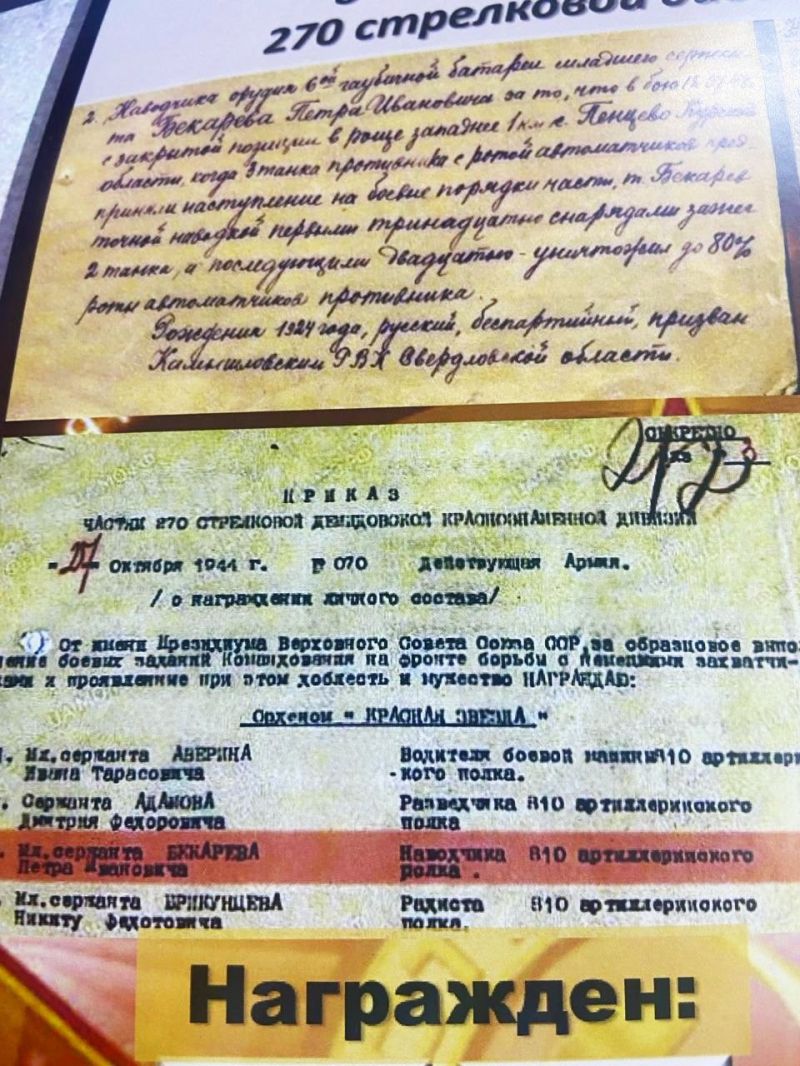 270 стрелковой
2. Наводчика орудия 6ой гаубичной батареи младшего сержан-
та Бекарева Петра Ивановича за то, что в бою
с закрытой позиции в роще западнее 1 км с. Пенцево Курской
области, когда 3 танка противника с ротой автоматчиков пред-
приняли наступление на боевые порядки части, т. Бекарев
точной наводкой первыми тринадцатью снарядами зажег
2 танка, и последующими двадцатью - уничтожил до 80%
роты автоматчиков противника.
Рождения 1924 года, русский, беспартийный, призван
Камышловским РВК Свердловской области.
СЕКРЕТНО
ПРИКАЗ
ЧАСТЯМ 270 СТРЕЛКОВОЙ ДЕМИДОВСКОЙ КРАСНОЗНАМЕННОЙ ДИВИЗИИ
-27- Октября 1944 г. № 070 Действующая Армия.
/ о награждении личного состава/
От имени Президиума Верховного Совета Союза ССР за образцовое выпол
нение боевых заданий Командования на фронте борьбы с немецкими захватчи-
ками и проявленные при этом доблесть и мужество НАГРАЖДАЮ:
Орденом " КРАСНАЯ ЗВЕЗДА "
Мл.сержанта АВЕРИНА Водителя боевой машины 810 артиллерийс
Ивана Тарасовича -кого полка.
Сержанта АДАМОВА Разведчика 810 артиллерийского
Дмитрия Федоровича полка
Мл.сержанта БЕКАРЕВА Наводчика 810 артиллерийского
Петра Ивановича полка .
Мл.сержанта БРИКУНЦЕВА Радиста 810 артиллерийского
Никиту Федотовича полка.
Награжден: